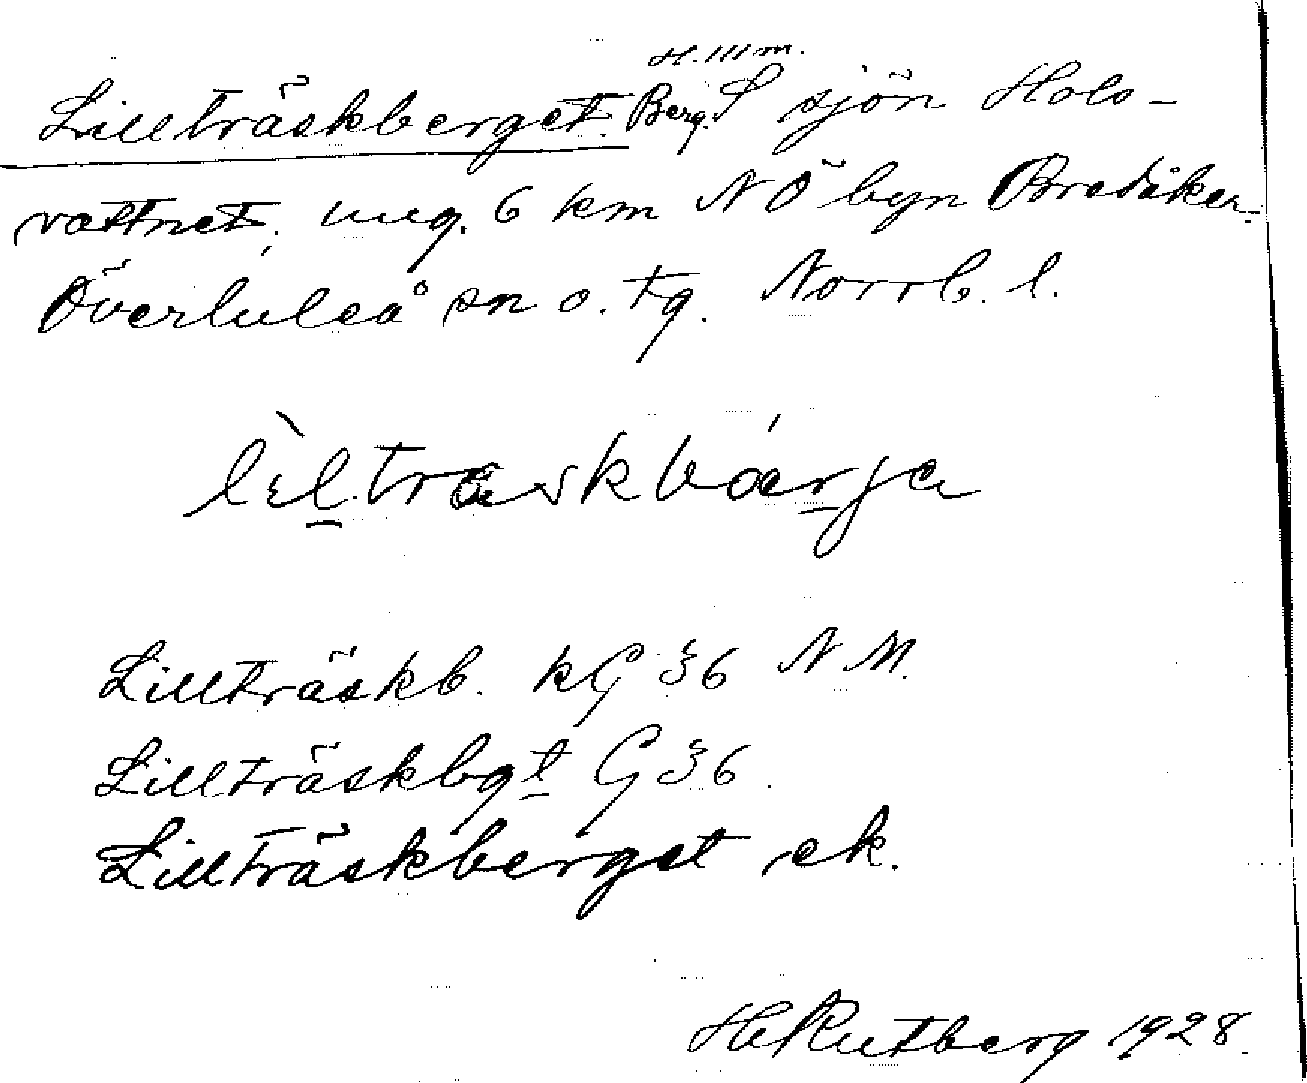 H. 111 m.
Lillträskberget. Berg. S sjön Hols-
vattnet, ung. 6 km NÖ byn Bredåker.
Överluleå sn o. tg. Norrb. l.
lìl̠träskbárja
Lillträskb. kG §6 N M.
Lillträskbgt G §6.
Lillträskberget ek.
H Rutberg 1928.